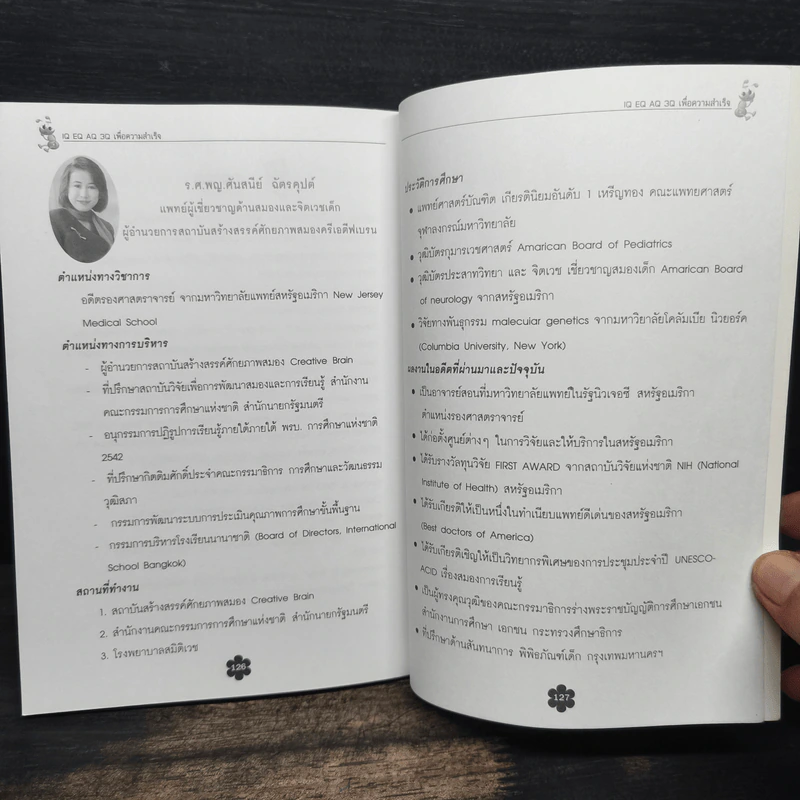 IQ EQ AQ 3Q เพื่อความสำเร็จ
ร.ศ.พญ.ศันสนีย์ ฉัตรคุปต์
แพทย์ผู้เชี่ยวชาญด้านสมองและจิตเวชเด็ก
ผู้อำนวยการสถาบันสร้างสรรค์ศักยภาพสมองครีเอตีฟเบรน
ตำแหน่งทางวิชาการ
อดีตรองศาสตราจารย์ จากมหาวิทยาลัยแพทย์สหรัฐอเมริกา New Jersey
Medical School
ตำแหน่งทางการบริหาร
- ผู้อำนวยการสถาบันสร้างสรรค์ศักยภาพสมอง Creative Brain
- ที่ปรึกษาสถาบันวิจัยเพื่อการพัฒนาสมองและการเรียนรู้ สำนักงาน
คณะกรรมการการศึกษาแห่งชาติ สำนักนายกรัฐมนตรี
- อนุกรรมการปฏิรูปการเรียนรู้ภายใต้ภายใต้ พรบ. การศึกษาแห่งชาติ
2542
- ที่ปรึกษากิตติมศักดิ์ประจำคณะกรรมาธิการ การศึกษาและวัฒนธรรม
วุฒิสภา
- กรรมการพัฒนาระบบการประเมินคุณภาพการศึกษาขั้นพื้นฐาน
- กรรมการบริหารโรงเรียนนานาชาติ (Board of Directors, International
School Bangkok)
สถานที่ทำงาน
1. สถาบันสร้างสรรค์ศักยภาพสมอง Creative Brain
2. สำนักงานคณะกรรมการการศึกษาแห่งชาติ สำนักนายกรัฐมนตรี
3. โรงพยาบาลสมิติเวช
126
IQ EQ AQ 3Q เพื่อความสำเร็จ
ประวัติการศึกษา
• แพทย์ศาสตร์บัณฑิต เกียรตินิยมอันดับ 1 เหรียญทอง คณะแพทยศาสตร์
จุฬาลงกรณ์มหาวิทยาลัย
• วุฒิบัตรกุมารเวชศาสตร์ Amarican Board of Pediatrics
• วุฒิบัตรประสาทวิทยา และ จิตเวช เชี่ยวชาญสมองเด็ก Amarican Board
of neurology จากสหรัฐอเมริกา
• วิจัยทางพันธุกรรม malecular genetics จากมหาวิทยาลัยโคลัมเบีย นิวยอร์ค
(Columbia University, New York)
ผลงานในอดีตที่ผ่านมาและปัจจุบัน
• เป็นอาจารย์สอนที่มหาวิทยาลัยแพทย์ในรัฐนิวเจอซี สหรัฐอเมริกา
ตำแหน่งรองศาสตราจารย์
• ได้ก่อตั้งศูนย์ต่างๆ ในการวิจัยและให้บริการในสหรัฐอเมริกา
• ได้รับรางวัลทุนวิจัย FIRST AWARD จากสถาบันวิจัยแห่งชาติ NIH (National
Institute of Health) สหรัฐอเมริกา
• ได้รับเกียรติให้เป็นหนึ่งในทำเนียบแพทย์ดีเด่นของสหรัฐอเมริกา
(Best doctors of America)
• ได้รับเกียรติเชิญให้เป็นวิทยากรพิเศษของการประชุมประจำปี UNESCO-
ACID เรื่องสมองการเรียนรู้
• เป็นผู้ทรงคุณวุฒิของคณะกรรมาธิการร่างพระราชบัญญัติการศึกษาเอกชน
สำนักงานการศึกษา เอกชน กระทรวงศึกษาธิการ
• ที่ปรึกษาด้านสันทนาการ พิพิธภัณฑ์เด็ก กรุงเทพมหานครฯ
127